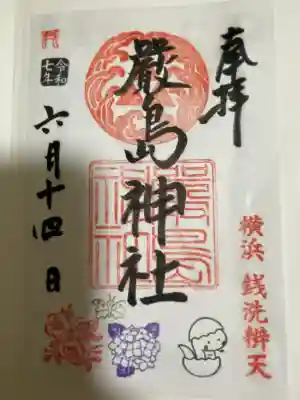 奉拝
厳島神社
令和
七年
六月十四日
横浜 銭洗辨天